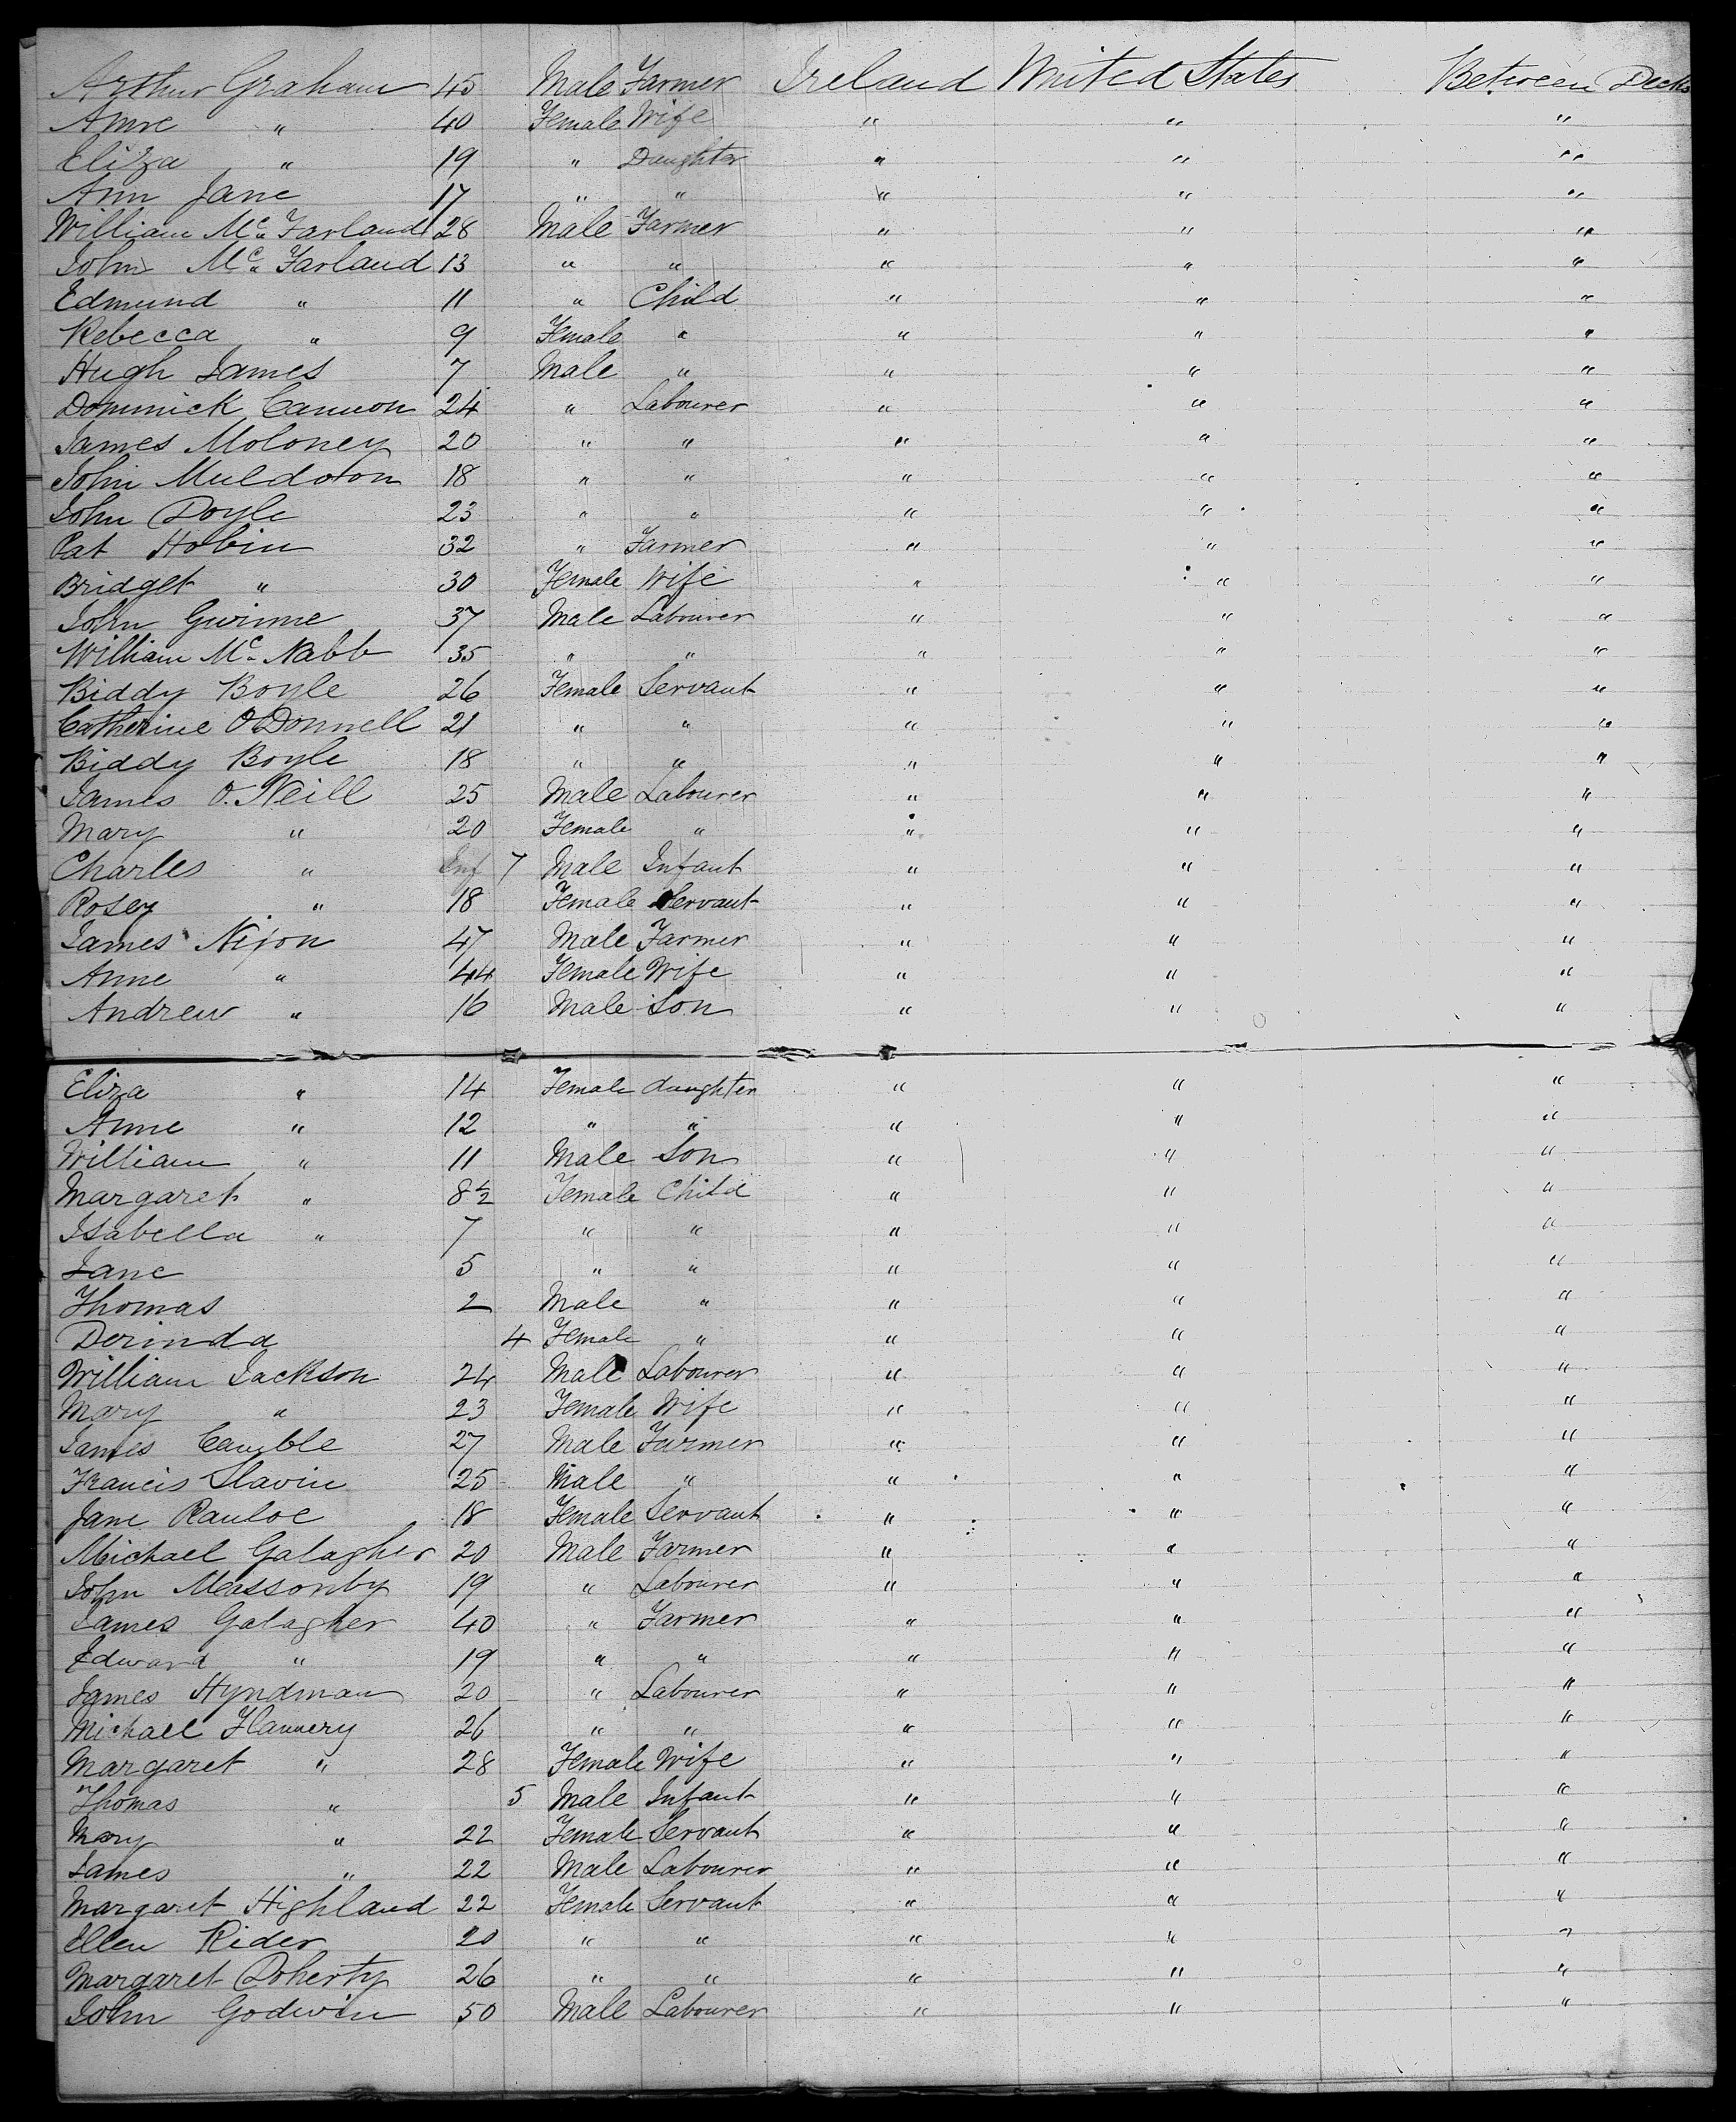 Arthur Graham 45 Male Farmer Ireland United States Between Decks
Anne " 40 Female Wife " " "
Eliza " 19 " Daughter " " "
Ann Jane 17 " " " " "
William Mc Farland 28 Male Farmer " " "
John Mc Farland 13 " " " " "
Edmund " 11 " Child " " "
Rebecca " 9 Female " " " "
Hugh James 7 Male " " " "
Dominick Cannon 24 " Labourer " " "
James Moloney 20 " " " " "
John Muldoon 18 " " " " "
John Doyle 23 " " " " "
Pat Hobin 32 " Farmer " " "
Bridget " 30 Female Wife " " "
John Gwinne 37 Male Labourer " " "
William Mc Nabb 35 " " " " "
Biddy Boyle 26 Female Servant " " "
Catherine O'Donnell 21 " " " " "
Biddy Boyle 18 " " " " "
James O. Neill 25 Male Labourer " " "
Mary " 20 Female " " " "
Charles " Inf 7 Male Infant " " "
Rosey " 18 Female Servant " " "
James Nixon 47 Male Farmer " " "
Anne " 44 Female Wife " " "
Andrew " 16 Male Son " " "
Eliza " 14 Female daughter " " "
Anne " 12 " " " " "
William " 11 Male Son " " "
Margaret " 8½ Female Child " " "
Isabella " 7 " " " " "
Jane 5 " " " " "
Thomas 2 Male " " " "
Derinda 4 Female " " " "
William Jackson 24 Male Labourer " " "
Mary " 23 Female Wife " " "
James Camble 27 Male Farmer " " "
Francis Slavin 25 Male " " " "
Jane 18 Female Servant " " "
Michael Galagher 20 Male Farmer " " "
John Massonby 19 " Labourer " " "
James Galagher 40 " Farmer " " "
Edward " 19 " " " " "
James Hyndman 20 " Labourer " " "
Michael Flannery 26 " " " " "
Margaret " 28 Female Wife " " "
Thomas " 5 Male Infant " " "
Mary " 22 Female Servant " " "
James " 22 Male Labourer " " "
Margaret Highland 22 Female Servant " " "
Ellen Rider 20 " " " " "
Margaret Doherty 26 " " " " "
John Godwin 50 Male Labourer " " "